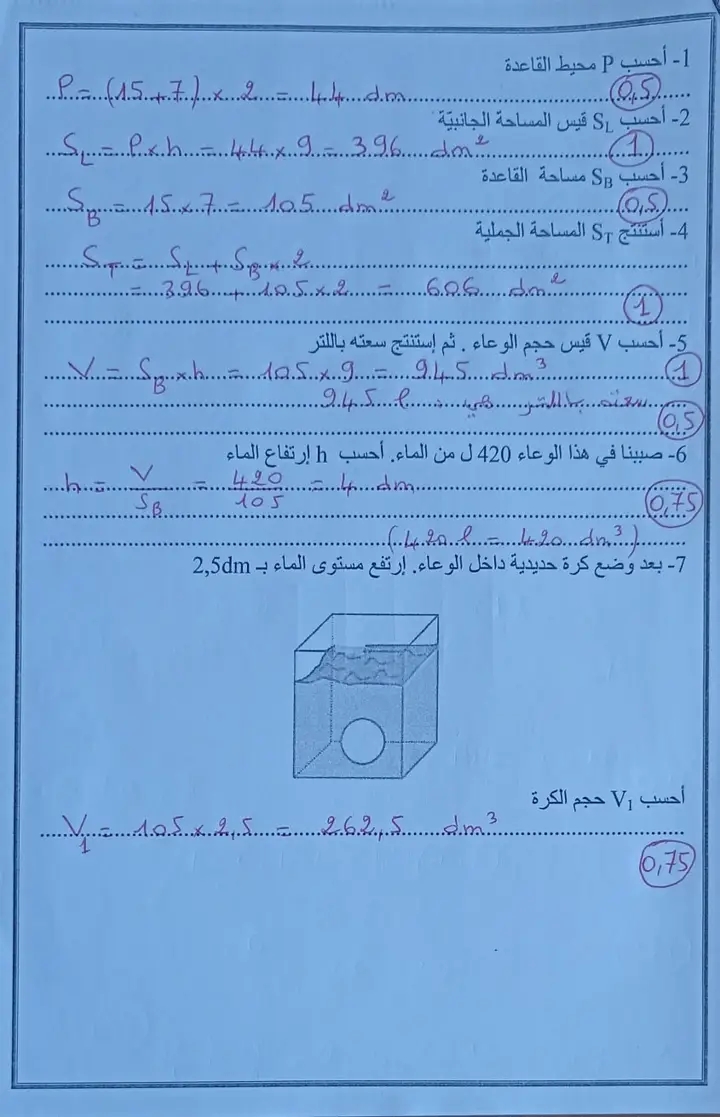 1- أحسب P محيط القاعدة
P = (15 + 7) x 2 = 44 dm
0,5
2- أحسب SL قيس المساحة الجانبيّة
SL = P x h = 44 x 9 = 396 dm²
1
3- أحسب SB مساحة القاعدة
SB = 15 x 7 = 105 dm²
0,5
4- أستنتج ST المساحة الجملية
ST = SL + SB x 2
= 396 + 105 x 2 = 606 dm²
1
5- أحسب V قيس حجم الوعاء . ثم إستنتج سعته باللتر
V = SB x h = 105 x 9 = 945 dm³
1
سعته باللتر هي : 945 l
0,5
6- صببنا في هذا الوعاء 420 ل من الماء. أحسب h إرتفاع الماء
h = V / SB = 420 / 105 = 4 dm
0,75
(420 l = 420 dm³)
7- بعد وضع كرة حديدية داخل الوعاء. إرتفع مستوى الماء بـ 2,5dm
أحسب V1 حجم الكرة
V1 = 105 x 2,5 = 262,5 dm³
0,75